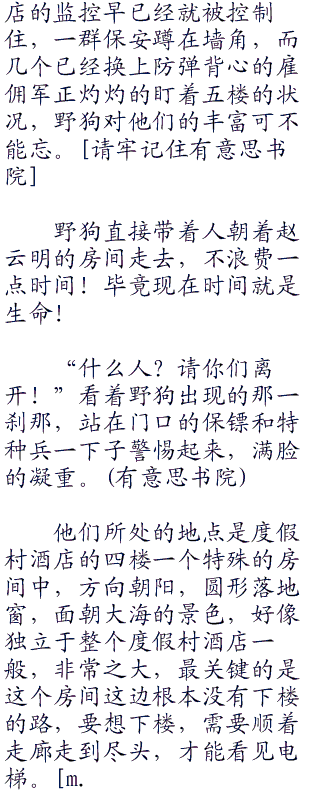 店的监控早已经就被控制
住，一群保安蹲在墙角，而
几个已经换上防弹背心的雇
佣军正灼灼的盯着五楼的状
况，野狗对他们的丰富可不
能忘。[请牢记住有意思书
院]
野狗直接带着人朝着赵
云明的房间走去，不浪费一
点时间！毕竟现在时间就是
生命！
“什么人？请你们离
开！”看着野狗出现的那一
刹那，站在门口的保镖和特
种兵一下子警惕起来，满脸
的凝重。(有意思书院)
他们所处的地点是度假
村酒店的四楼一个特殊的房
间中，方向朝阳，圆形落地
窗，面朝大海的景色，好像
独立于整个度假村酒店一
般，非常之大，最关键的是
这个房间这边根本没有下楼
的路，要想下楼，需要顺着
走廊走到尽头，才能看见电
梯。[m.